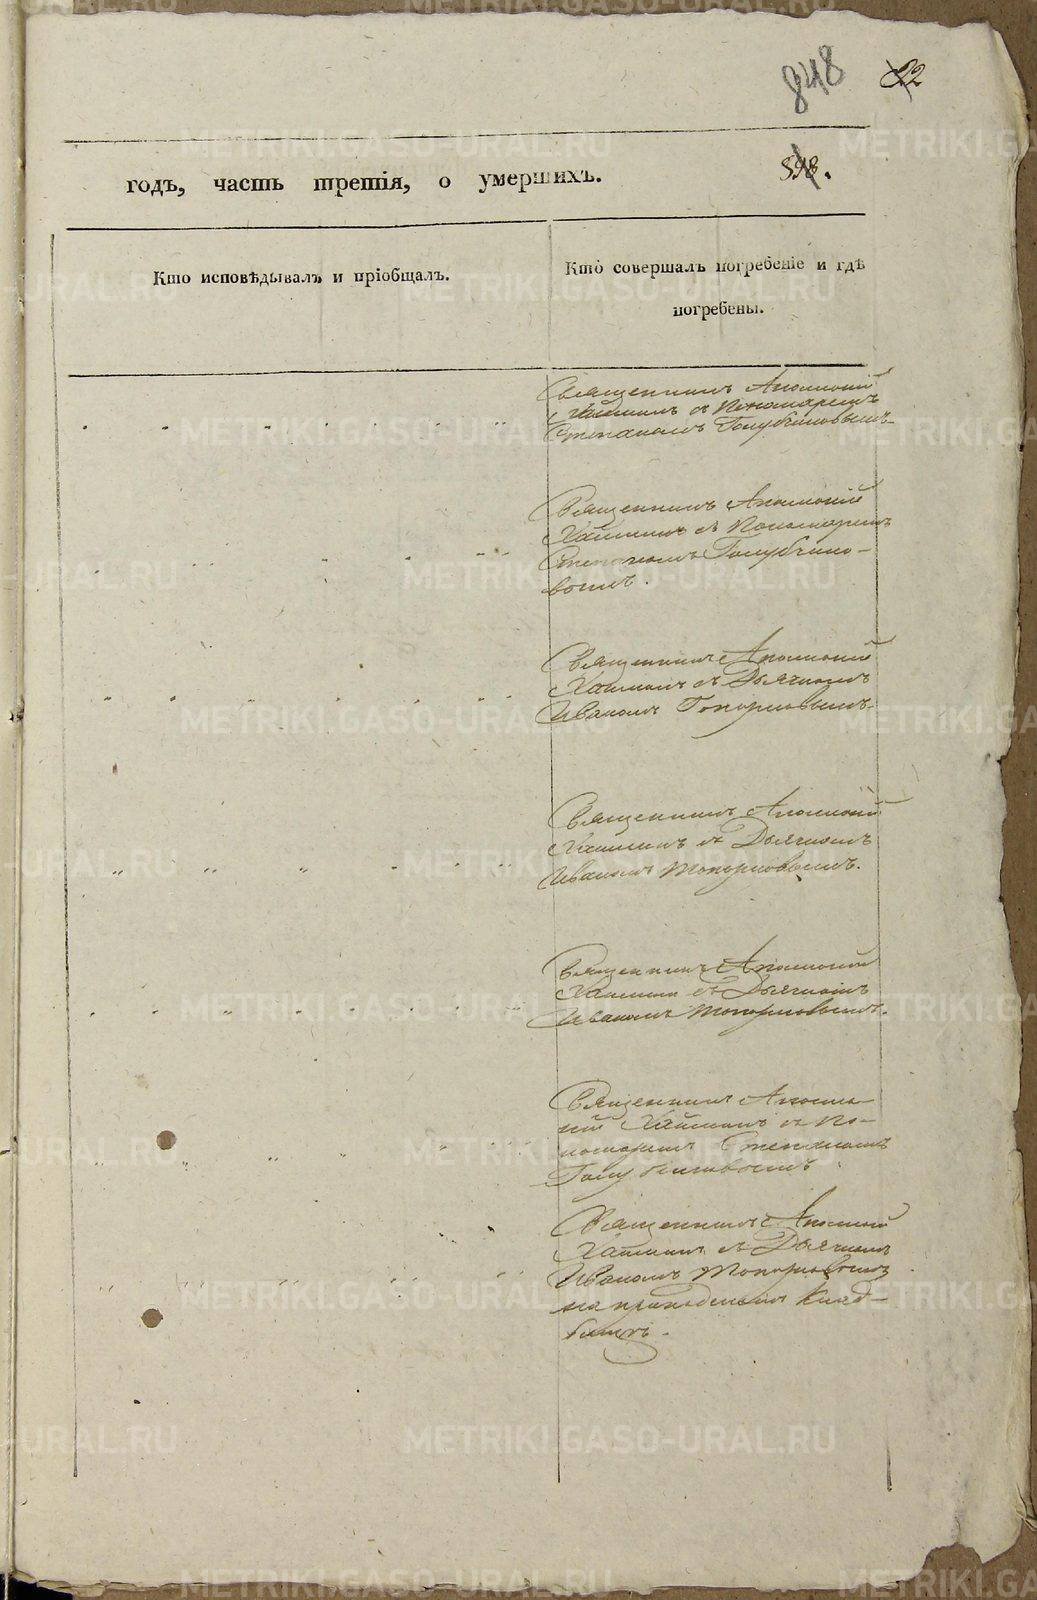 848
22
годъ, часть третія, о умершихъ.
898.
Кто исповѣдывалъ и пріобщалъ.
Кто совершалъ погребеніе и гдѣ
погребены.
Священникъ Аполлоній
съ Пономаремъ
Степаномъ Голубчиковымъ
Священникъ Аполлоній
съ Пономаремъ
Степаномъ Голубчико-
вымъ.
Священникъ Аполлоній
съ Дьячкомъ
Иваномъ Топорковымъ
Священникъ Аполлоній
съ Дьячкомъ
Иваномъ Топорковымъ.
Священникъ Аполлоній
съ Дьячкомъ
Иваномъ Топорковымъ.
Священникъ Аполло-
ній съ По-
номаремъ Степаномъ
Голубчиковымъ
Священникъ Аполлоній
съ Дьячкомъ
Иваномъ Топорковымъ
на приходскомъ Клад-
бищѣ.
METRIKI.GASO-URAL.RU